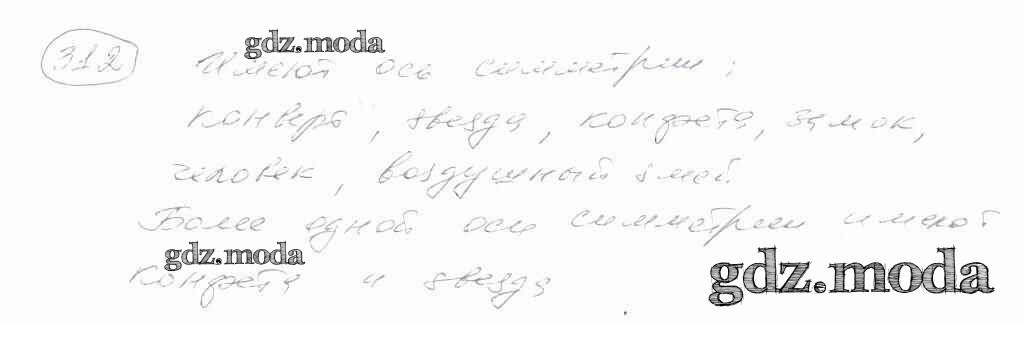 gdz.moda
312 Имеют ось симметрии:
конверт, звезда, конфета, замок,
человек, воздушный змей.
Более одной оси симметрии имеют
gdz.moda
конфета и звезда
gdz.moda